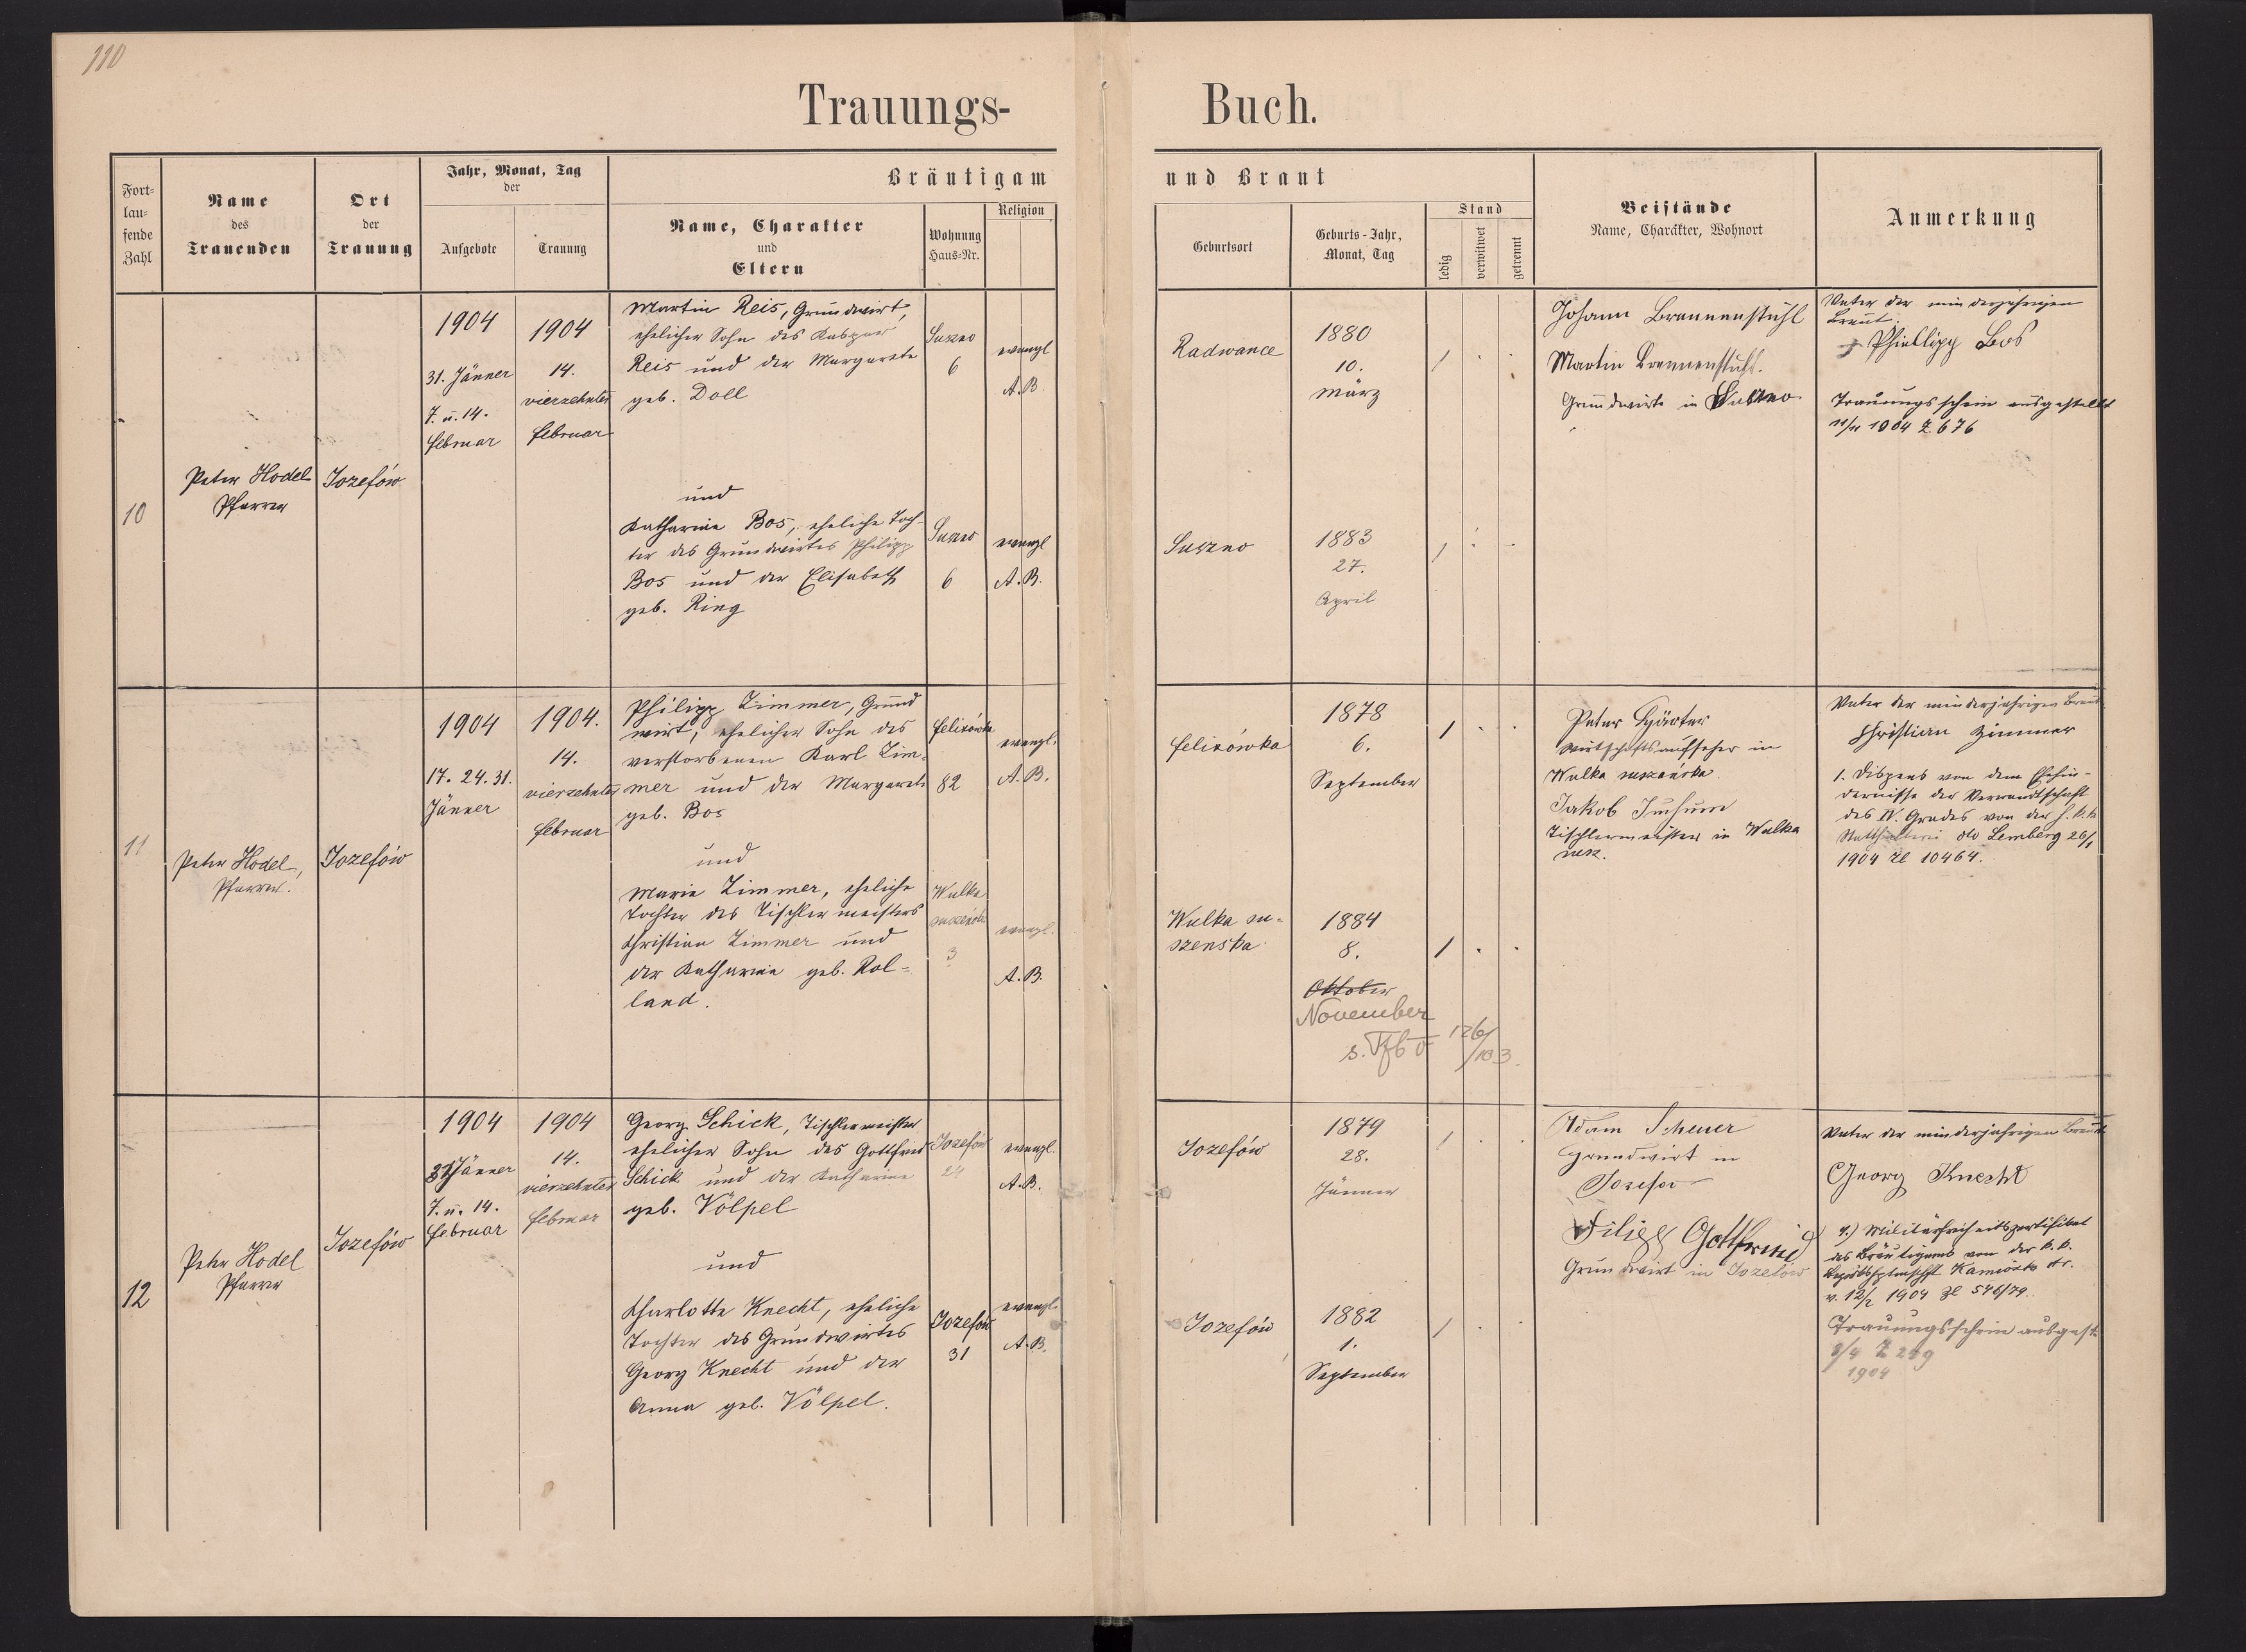 110
Trauungs-Buch.
Fort-
lau-
fende
Zahl
Name
des
Trauenden
Ort
der
Trauung
Jahr, Monat, Tag
der
Aufgebote
Trauung
Bräutigam und Braut
Name, Charakter
und
Eltern
Wohnung
Haus-Nr.
Religion
Geburtsort
Geburts-Jahr,
Monat, Tag
Stand
ledig
verwitwet
getrennt
Beistände
Name, Charakter, Wohnort
Anmerkung
10
Peter Hodel
Pfarrer
Jozefów
1904
31. Jänner
7. u. 14.
Februar
1904
14.
vierzehnter
Februar
Martin Reis, Grundwirt,
ehelicher Sohn des Kaspar
Reis und der Margarete
geb. Doll
Suszno
6
evangl
A.B.
Radwance
1880
10.
März
1
Johann Brennenstuhl
Martin Brennenstuhl.
Grundwirte in Suszno
Vater der minderjährigen
Braut.
Phiellipp Bos
Trauungsschein ausgestellt
1904 Z 676
und
Katharina Bos, eheliche Toch-
ter des Grundwirtes Philipp
Bos und der Elisabeth
geb. Ring
Suszno
6
evangl
A.B.
Suszno
1883
27.
April
1
11
Peter Hodel,
Pfarrer.
Jozefów
1904
17. 24. 31.
Jänner
1904.
14.
vierzehnter
Februar
Philipp Zimmer, Grund
wirt, ehelicher Sohn des
verstorbenen Karl Zim-
mer und der Margarete
geb. Bos
Felizówka
82
evangl.
A.B.
Felizówka
1878
6.
September
1
Peter
Wirtschaftsaufseher in
Wulka suszeńska.
Jakob
Tischlermeister in Wulka
susz.
Vater der minderjährigen Braut
Christian Zimmer
1. Dispens von dem Ehehin-
dernisse der Verwandtschaft
des IV. Grades von der h. k.k.
Statthalterei dto Lemberg 26/1
1904 Zl 10464.
und
Marie Zimmer, eheliche
Tochter des Tischlermeisters
Christian Zimmer und
der Katharina geb. Rol-
land.
Wulka
suszeńska
3
evangl.
A.B.
Wulka su-
szenska
1884
8.
Oktober
November
s. Tfb 126/103
1
12
Peter Hodel
Pfarrer
Jozefów
1904
31 Jänner
7. u. 14.
Februar
1904
14.
vierzehnter
Februar
Georg Schick, Tischlermeister
ehelicher Sohn des Gottfried
Schick und der Katharina
geb. Völpel
Jozefów
24
evangl.
A.B.
Jozefów
1879
28.
Jänner
1
Adam Scheuer
Grundwirt in
Josefow
Filipp Gottfried
Grundwirt in Jozefów
Vater der minderjährigen Braut
Georg Knecht
1.) Militärfreiheitszertifikat
des Bräutigams von der k.k.
Bezirkshptmschft Kamionka str.
v. 12/2 1904 Zl 546/79.
Trauungsschein ausgest.
8/4 Z 289
1904
und
Charlotte Knecht, eheliche
Tochter des Grundwirtes
Georg Knecht und der
Anna geb. Völpel.
Jozefów
31
evangl.
A.B.
Jozefów
1882
1.
September
1